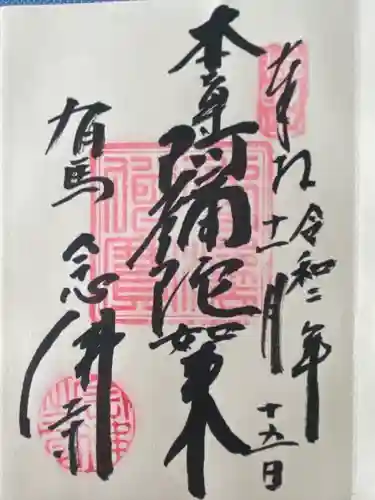 奉拝 令和二年
十一月十九日
本尊阿弥陀如来
有馬 念佛寺